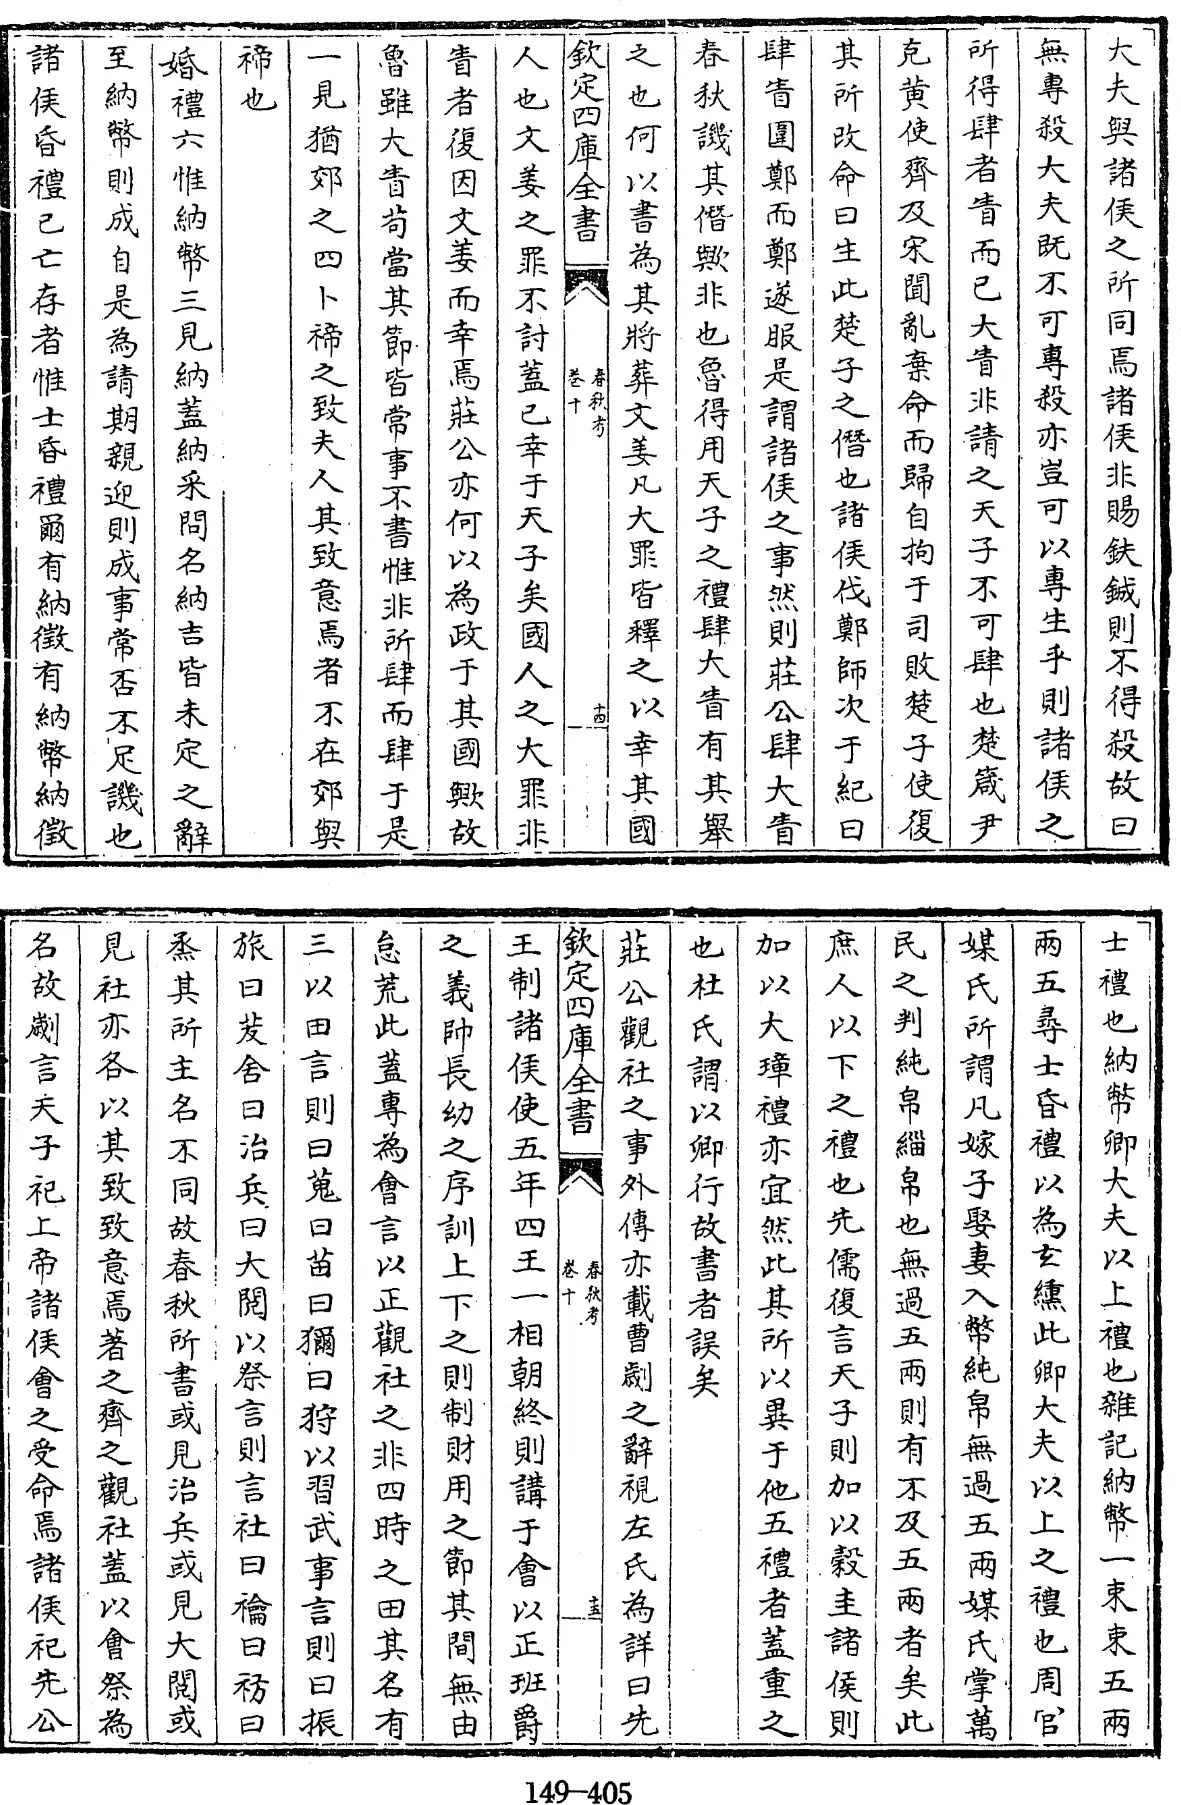 大夫與諸侯之所同焉諸侯非賜鈇鉞則不得殺故曰
無專殺大夫既不可專殺亦豈可以專生乎則諸侯之
所得肆者眚而已大眚非請之天子不可肆也楚箴尹
克黄使齊及宋聞亂棄命而歸自拘于司敗楚子使復
其所改命曰生此楚子之僭也諸侯伐鄭師次于紀曰
肆眚圍鄭而鄭遂服是謂諸侯之事然則莊公肆大眚
春秋譏其僭歟非也魯得用天子之禮肆大眚有其舉
之也何以書為其將葬文姜凡大罪皆釋之以幸其國
欽定四庫全書
春秋考
卷十
十四
人也文姜之罪不討蓋已幸于天子矣國人之大罪非
眚者復因文姜而幸焉莊公亦何以為政于其國歟故
魯雖大眚苟當其節皆常事不書惟非所肆而肆于是
一見猶郊之四卜禘之致夫人其致意焉者不在郊與
禘也
婚禮六惟納幣三見納蓋納采問名納吉皆未定之辭
至納幣則成自是為請期親迎則成事常否不足譏也
諸侯昏禮已亡存者惟士昏禮爾有納徵有納幣納徵
士禮也納幣卿大夫以上禮也雜記納幣一束束五兩
兩五尋士昏禮以為玄纁此卿大夫以上之禮也周官
媒氏所謂凡嫁子娶妻入幣純帛無過五兩媒氏掌萬
民之判純帛緇帛也無過五兩則有不及五兩者矣此
庶人以下之禮也先儒復言天子則加以穀圭諸侯則
加以大璋禮亦宜然此其所以異于他五禮者蓋重之
也杜氏謂以卿行故書者誤矣
莊公觀社之事外傳亦載曹劌之辭視左氏為詳曰先
欽定四庫全書
春秋考
卷十
十五
王制諸侯使五年四王一相朝終則講于會以正班爵
之義帥長幼之序訓上下之則制財用之節其間無由
怠荒此蓋專為會言以正觀社之非四時之田其名有
三以田言則曰蒐曰苗曰獮曰狩以習武事言則曰振
旅曰茇舍曰治兵曰大閱以祭言則言社曰禴曰祊曰
烝其所主名不同故春秋所書或見治兵或見大閱或
見社亦各以其致致意焉著之齊之觀社蓋以會祭為
名故劌言天子祀上帝諸侯會之受命焉諸侯祀先公
149-405